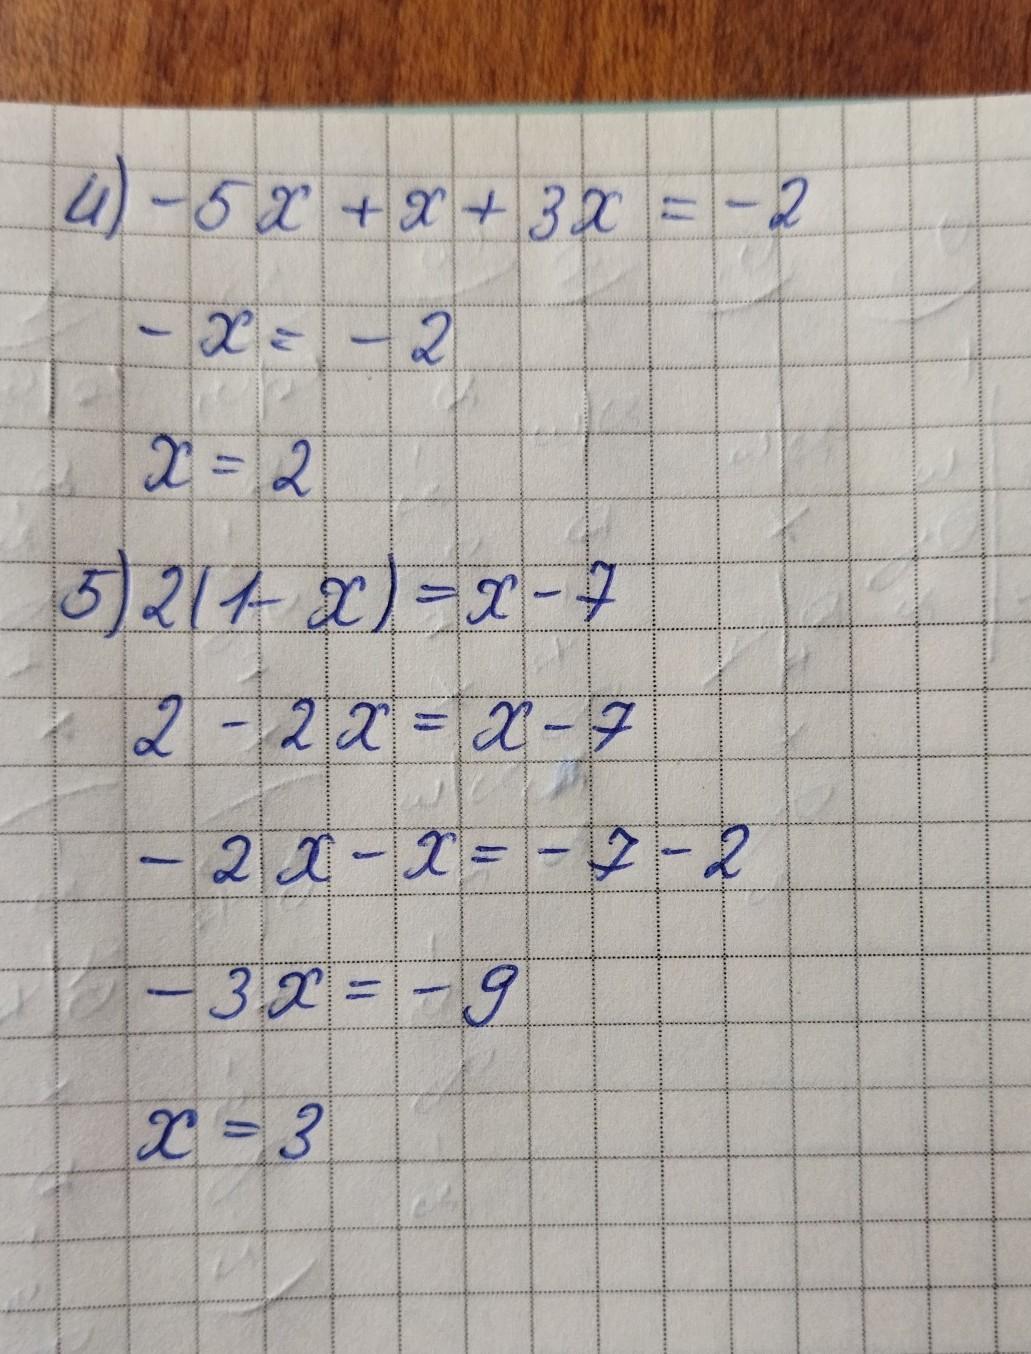 4) -5x + x + 3x = -2
-x = -2
x = 2
5) 2(1-x) = x-7
2 - 2x = x-7
-2x - x = -7-2
-3x = -9
x = 3